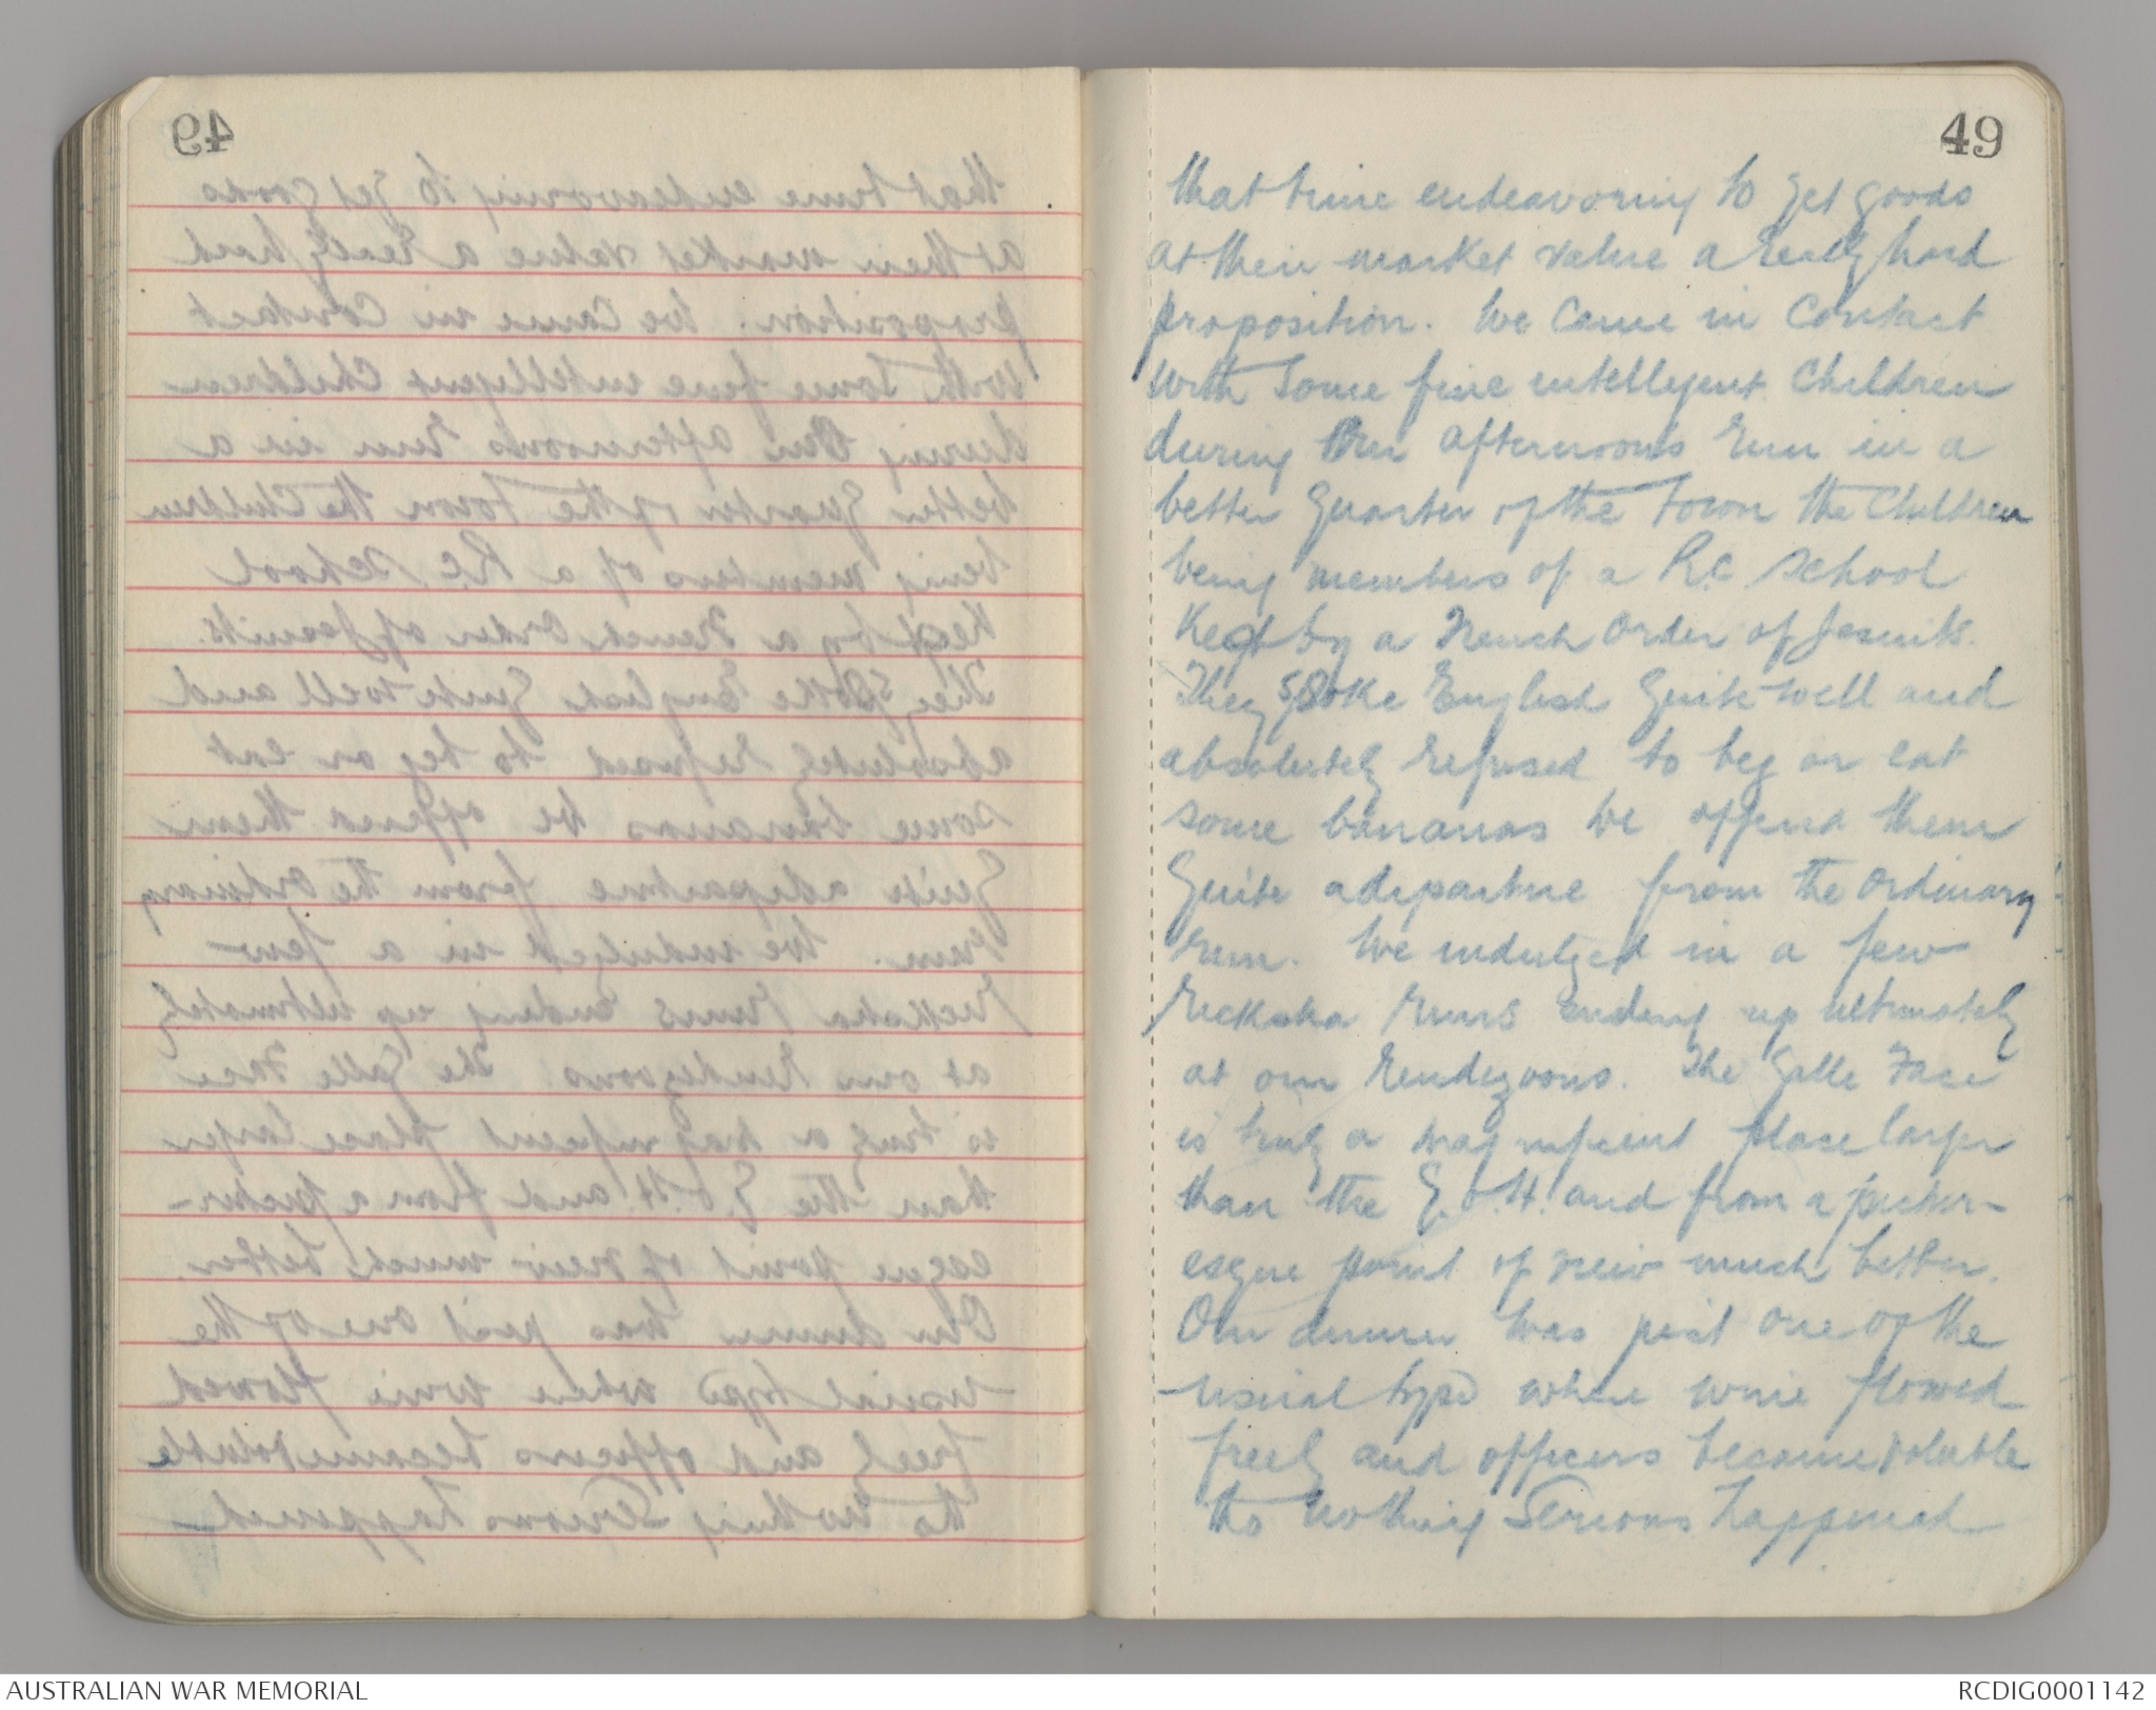 49
that time endeavoring to get goods
at their market value a really hard
proposition. We came in contact
with some fine intelligent children
during our afternoon's run in a
better quarter of the town the children
being members of a R.C. school
kept by a French order of Jesuits.
They spoke English quite well and
absolutely refused to beg or eat
some bananas we offered them
quite a departure from the ordinary
run. We indulged in a few
rickska runs ending up ultimately
at our rendezvous. The Galle Face
is truly a magnificent place larger
than the G.O.H. and from a pictur-
esque point of view much better.
Our dinner was just one of the
usual type where wine flowed
freely and officers became voluble
tho nothing serious happened
AUSTRALIAN WAR MEMORIAL
RCDIG0001142